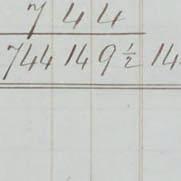 7 4 4
744 14 9 ½ 14